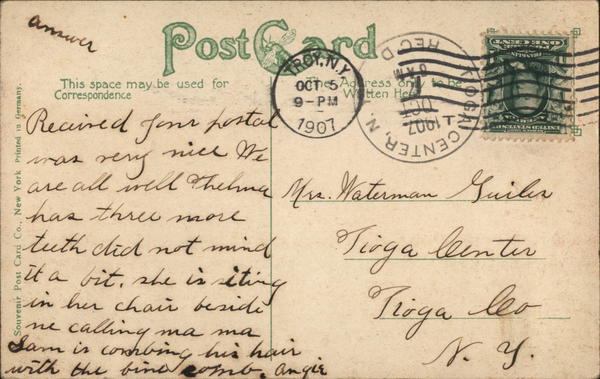 answer
Post Card
This space may be used for
Correspondence
The Address only to be
Written Here
TROY, N.Y.
OCT 5
9-PM
1907
TIOGA CENTER, N.
REC'D
OCT
1907
Souvenir Post Card Co., New York Printed in Germany.
Received your postal
was very nice We
are all well Thelma
has three more
teeth did not mind
it a bit. she is siting
in her chair beside
me calling ma ma
Sam is combing his hair
with the fine comb. Angie
Mrs. Waterman Guiles
Tioga Center
Tioga Co
N. Y.